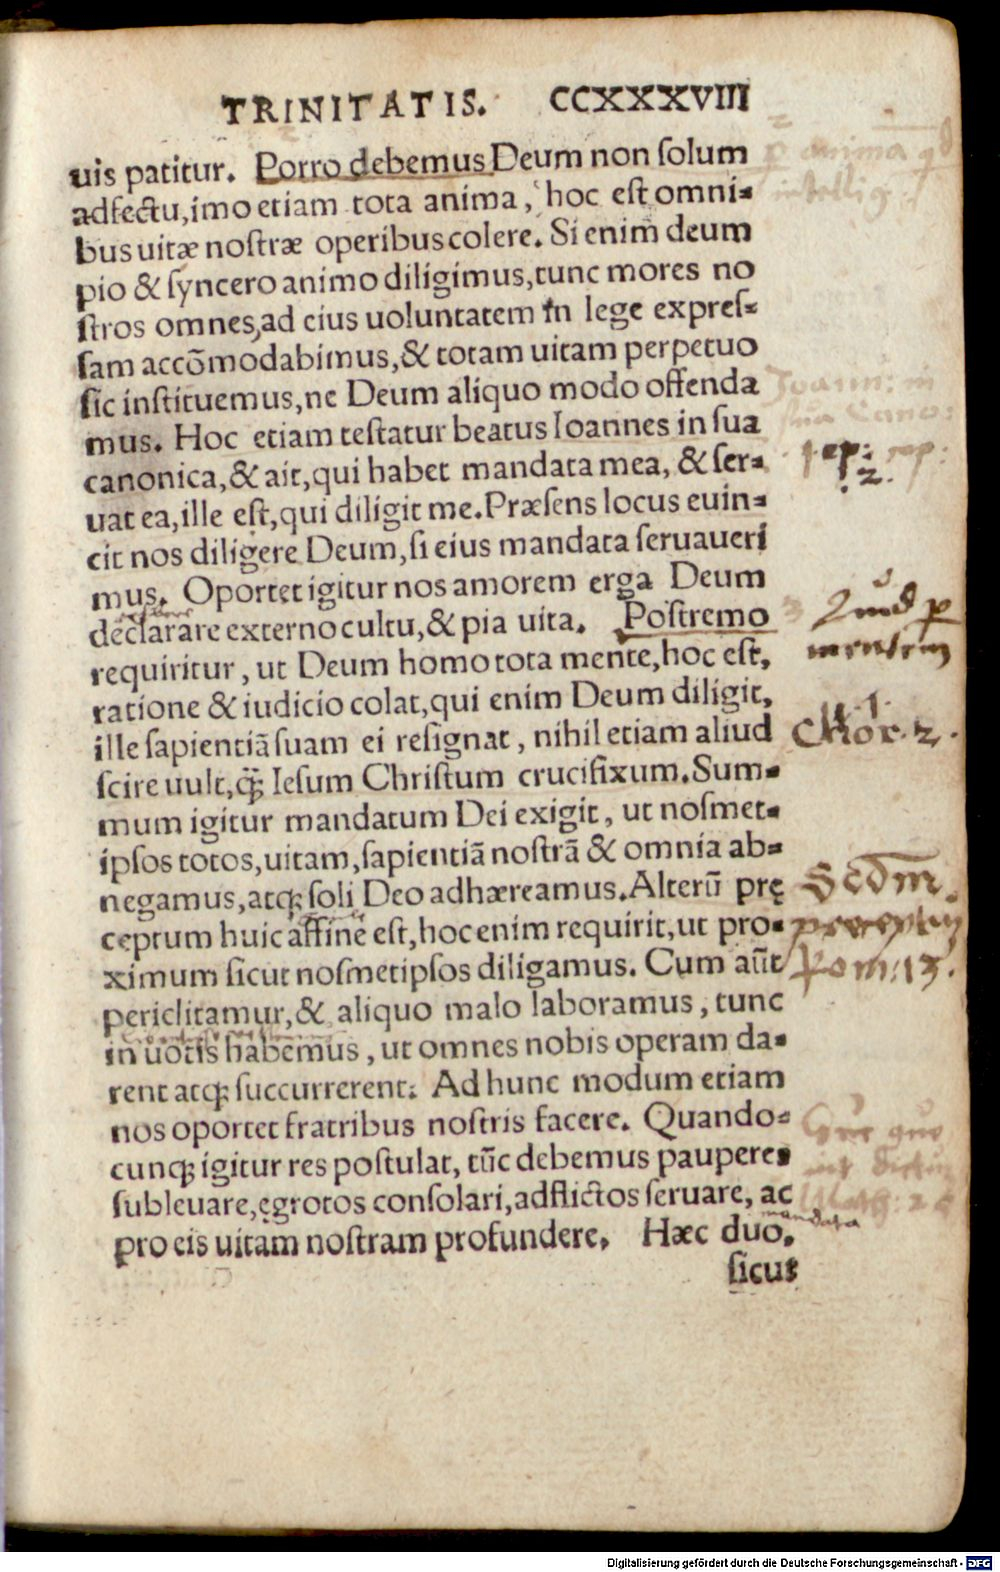 TRINITATIS. CCXXXVIII
uis patitur. Porro debemus Deum non ſolum
adfectu, imo etiam tota anima, hoc eſt omni⸗
bus uitæ noſtræ operibus colere. Si enim deum
pio & ſyncero animo diligimus, tunc mores no
ſtros omnes, ad eius uoluntatem in lege expreſ⸗
ſam accōmodabimus, & totam uitam perpetuo
ſic inſtituemus, ne Deum aliquo modo offenda
mus. Hoc etiam teſtatur beatus Ioannes in ſua
canonica, & ait, qui habet mandata mea, & ſer⸗
uat ea, ille eſt, qui diligit me. Præſens locus euin⸗
cit nos diligere Deum, ſi eius mandata ſeruaueri
mus. Oportet igitur nos amorem erga Deum
declarare externo cultu, & pia uita. Poſtremo
requiritur, ut Deum homo tota mente, hoc eſt,
ratione & iudicio colat, qui enim Deum diligit,
ille ſapientiā ſuam ei reſignat, nihil etiam aliud
ſcire uult, q̃ꝫ Ieſum Chriſtum crucifixum. Sum⸗
mum igitur mandatum Dei exigit, ut noſmet⸗
ipſos totos, uitam, ſapientiā noſtrā & omnia ab⸗
negamus, atqꝫ ſoli Deo adhæreamus. Alterū prę
ceptum huic affine eſt, hoc enim requirit, ut pro⸗
ximum ſicut noſmetipſos diligamus. Cum aūt
periclitamur, & aliquo malo laboramus, tunc
in uotis habemus, ut omnes nobis operam da⸗
rent atqꝫ ſuccurrerent. Ad hunc modum etiam
nos oportet fratribus noſtris facere. Quando⸗
cunqꝫ igitur res poſtulat, tūc debemus pauperes
ſubleuare, ęgrotos conſolari, adflictos ſeruare, ac
pro eis uitam noſtram profundere. Hæc duo.
mandata
ſicut
p anima qd
intellig
Joann: in
sua Cano:
1 ep:
2.
Quid p
mentem
1. Chor. 2.
Secdm
preceptum
Rom: 13.
Digitalisierung gefördert durch die Deutsche Forschungsgemeinschaft - DFG